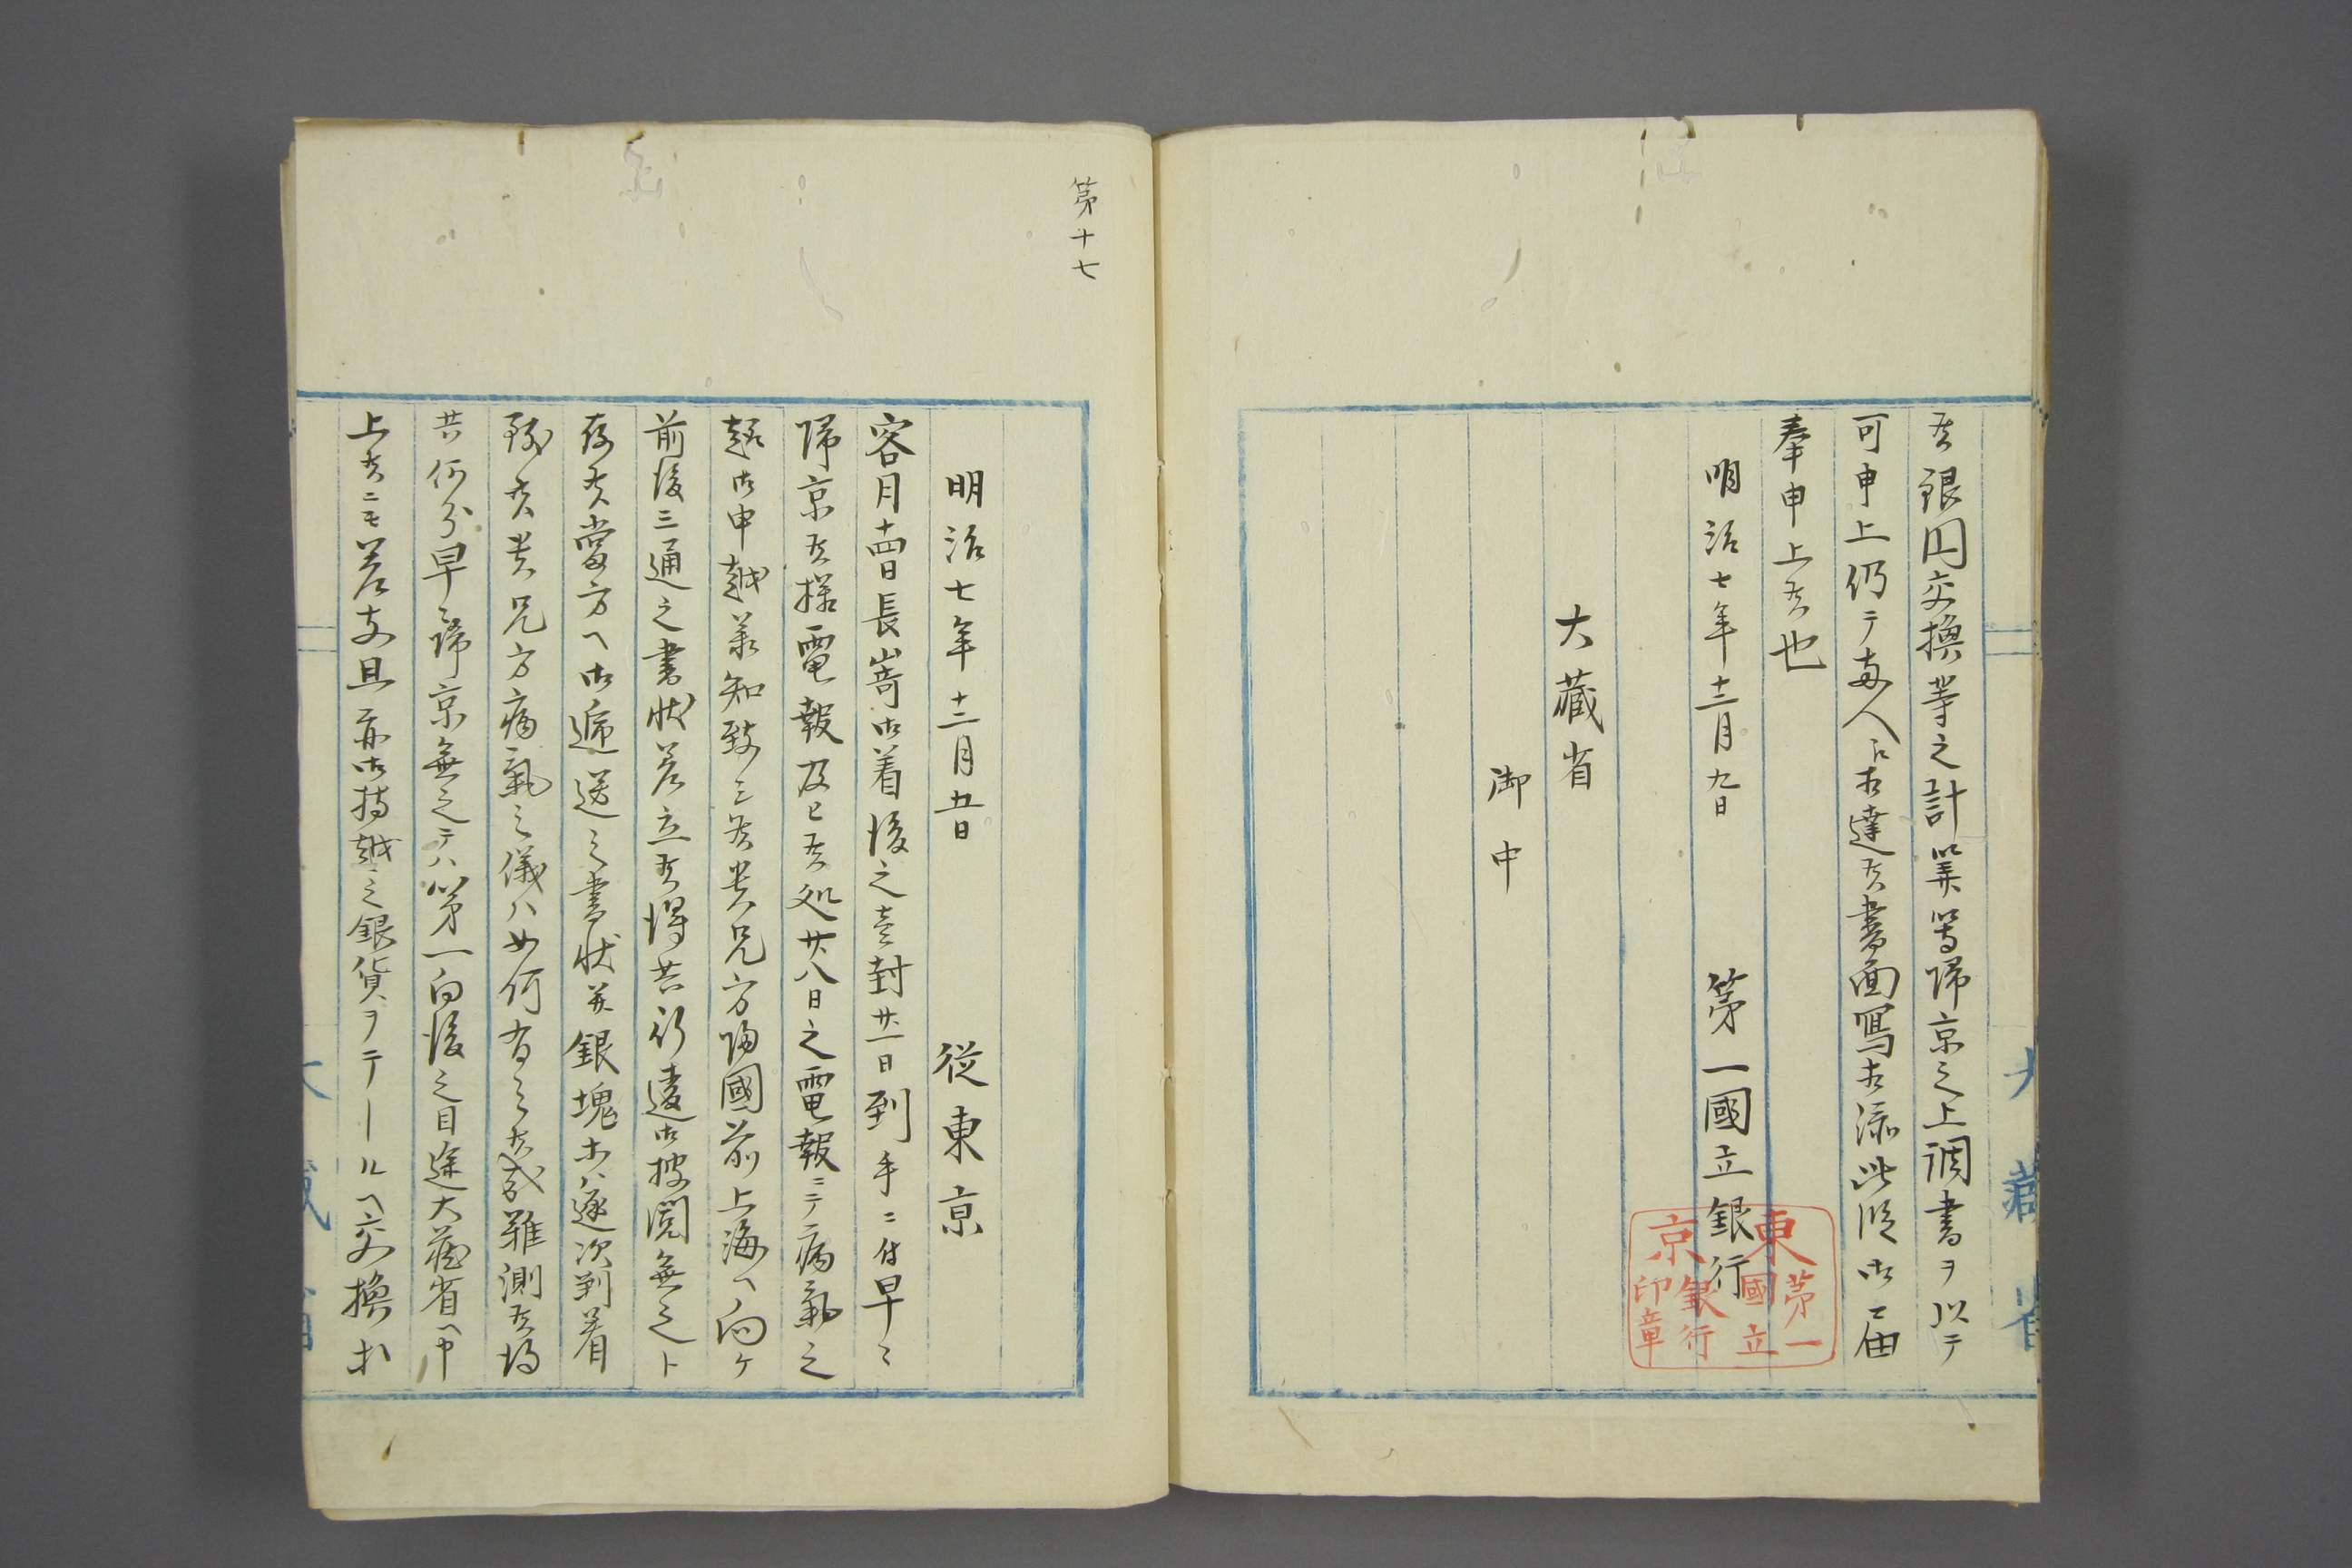 候銀円交換等之計算等帰京之上調書ヲ以テ
可申上仍テ両人ゟ相達候書面写相添此段御届
奉申上候也
明治七年十二月九日
第一國立銀行
東京第一國立銀行印章
大藏省
御中
大藏省
第十七
明治七年十二月五日
従東京
客月十四日長崎御着後之壱封廿一日到手ニ付早々
帰京候様電報及ヒ候処廿八日之電報ニテ病氣之
趣御申越承知致シ候貴兄方帰國前上海ヘ向ケ
前後三通之書状差立候得共行違御披閲無之ト
存候當方ヘ御逓送之書状并銀塊ホハ逐次到着
致候貴兄方病氣之儀ハ如何有之候哉難測候得
共何分早々帰京無之テハ第一向後之目途大藏省ヘ申
上候ニモ差支且亦御持越之銀貨ヲテールヘ交換ホ
大藏省